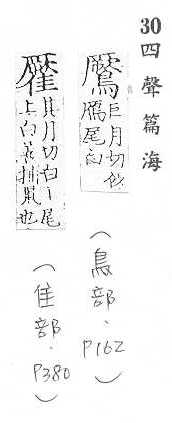 30 四聲篇海
巨月切似
鴈尾白
(鳥部.P162)
其月切白丨尾
上白善捕鼠也
(隹部.P380)